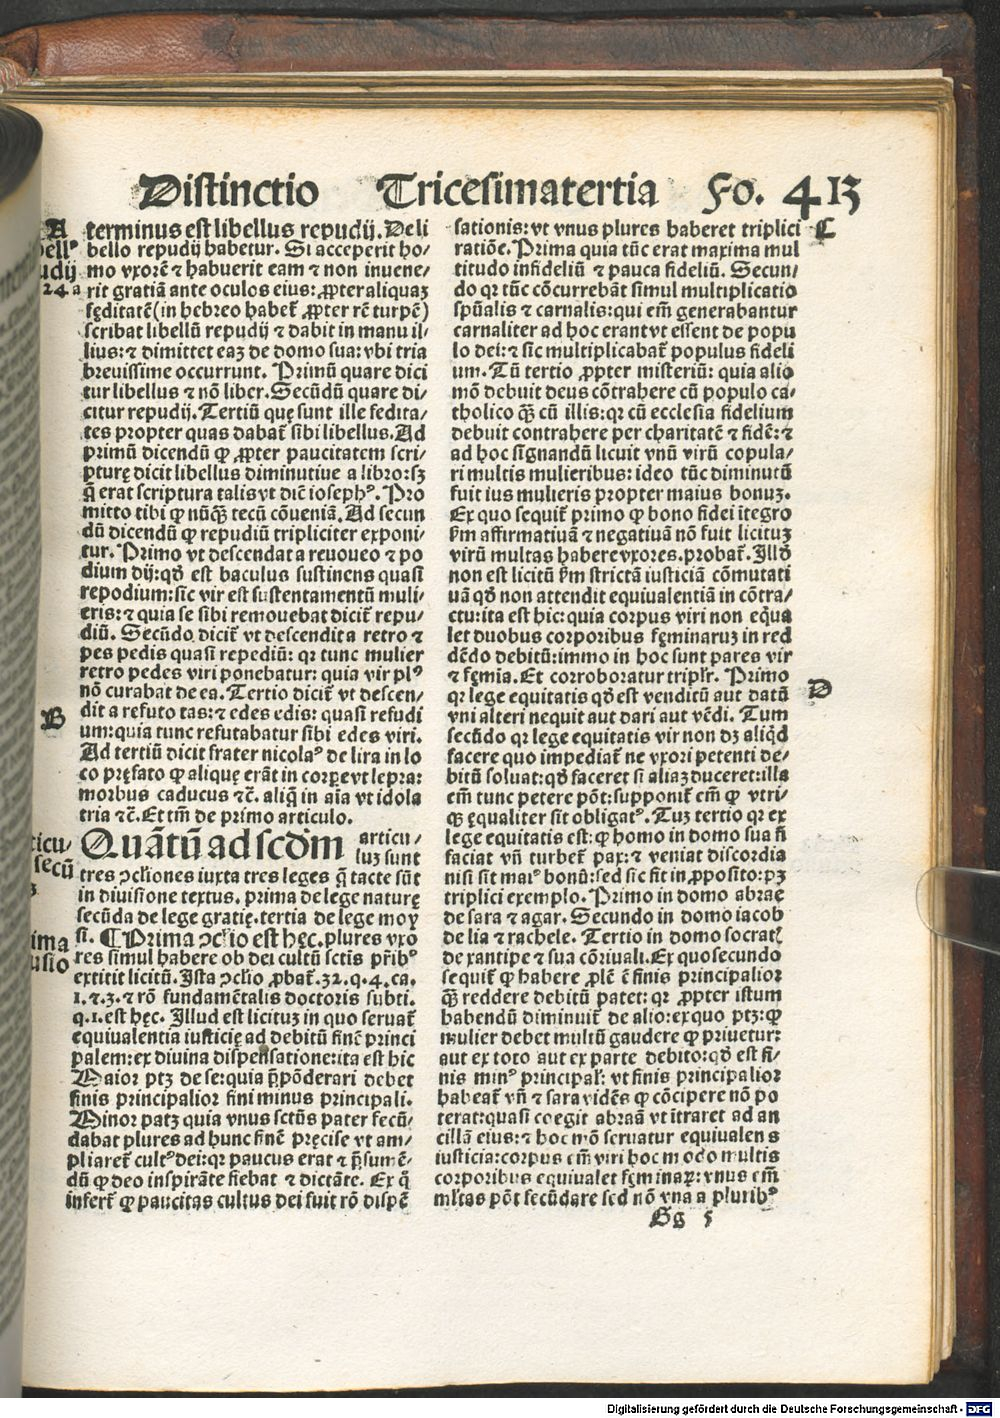 Distinctio Tricesimatertia Fo. 413
A
24 a
terminus est libellus repudij. De li
bello repudij habetur. Si acceperit ho-
mo vxorē ⁊ habuerit eam ⁊ non inuene-
rit gratiā ante oculos eius: ꝓpter aliquaꝫ
fęditatē (in hebreo habet̄ ꝓpter rē turpē)
scribat libellū repudij ⁊ dabit in manu il-
lius: ⁊ dimittet eaꝫ de domo sua: vbi tria
breuissime occurrunt. Primū quare dici
tur libellus ⁊ nō liber. Secūdū quare di-
citur repudij. Tertiū quę sunt ille fedita-
tes propter quas dabat̄ sibi libellus. Ad
primū dicendū ꝙ ꝓpter paucitatem scri-
pturę dicit libellus diminutiue a libro: sꝫ
q̄ erat scriptura talis vt dic̄ iosephꝰ. Pro
mitto tibi ꝙ nūꝗ̄ tecū cōueniā. Ad secun
dū dicendū ꝙ repudiū tripliciter exponi-
tur. Primo vt descendat a reuoueo ⁊ po
dium dij: qđ est baculus sustinens quasi
repodium: sic vir est sustentamentū muli-
eris: ⁊ quia se sibi remouebat dicit̄ repu-
diū. Secūdo dicit̄ vt descendit a retro ⁊
pes pedis quasi repediū: qr tunc mulier
retro pedes viri ponebatur: quia vir plꝰ
nō curabat de ea. Tertio dicit̄ vt descen-
B
dit a refuto tas: ⁊ edes edis: quasi refudi
um: quia tunc refutabatur sibi edes viri.
Ad tertiū dicit frater nicolaꝰ de lira in lo
co pręfato ꝙ alique erāt in corꝑe vt lepra:
morbus caducus ⁊c̄. aliq̄ in aīa vt idola
tria ⁊c̄. Et tm̄ de primo articulo.
Quātū ad scdm articu-
luꝫ sunt
tres ꝯcliones iuxta tres leges q̄ tacte sūt
in diuisione textus. prima de lege naturę
secūda de lege gratię. tertia de lege moy
si. ¶ Prima ꝯclio est hęc. plures vxo
res simul habere ob dei cultū sctis pr̄ibꝰ
extitit licitū. Ista ꝯclio ꝓbat̄. 32. q. 4. ca.
1. ⁊. 3. ⁊ rō fundamētalis doctoris subti.
q. 1. est hęc. Illud est licituꝫ in quo seruat̄
equiualentia iusticię ad debitū finē princi
palem: ex diuina dispensatione: ita est hic
Maior ptꝫ de se: quia p̄pōderari debet
finis principalior fini minus principali.
Minor patꝫ quia vnus sctūs pater fecū-
dabat plures ad hunc finē pręcise vt am-
pliaret̄ cultꝰ dei: qr paucus erat ⁊ p̄sumē-
dū ꝙ deo inspirāte fiebat ⁊ dictāte. Ex q̄
infert̄ ꝙ paucitas cultus dei fuit rō dispē
C
sationis: vt vnus plures haberet triplici
ratiōe. Prima quia tūc erat maxima mul
titudo infideliū ⁊ pauca fideliū. Secun-
do qr tūc cōcurrebāt simul multiplicatio
spūalis ⁊ carnalis: qui em̄ generabantur
carnaliter ad hoc erant vt essent de popu
lo dei: ⁊ sic multiplicabat̄ populus fideli
um. Tū tertio ꝓpter misteriū: quia alio
mō debuit deus cōtrahere cū populo ca-
tholico ꝗ̄ cū illis: qr cū ecclesia fidelium
debuit contrahere per charitatē ⁊ fidē: ⁊
ad hoc signandū licuit vnū virū copula-
ri multis mulieribus: ideo tūc diminutū
fuit ius mulieris propter maius bonuꝫ.
Ex quo sequit̄ primo ꝙ bono fidei ītegro
ẜm affirmatiuā ⁊ negatiuā nō fuit licituꝫ
virū multas habere vxores. probat̄. Illđ
non est licitū ẜm strictā iusticiā cōmutati
uā qđ non attendit equiualentiā in cōtra-
ctu: ita est hic: quia corpus viri non eq̄ua
let duobus corporibus fęminaruꝫ in red
dēdo debitū: immo in hoc sunt pares vir
⁊ fęmia. Et corroboratur triplr̄. Primo
D
qr lege equitatis qđ est venditū aut datū
vni alteri nequit aut dari aut vēdi. Tum
secūdo qr lege equitatis vir non dꝫ aliq̄d
facere quo impediat̄ ne vxori petenti de-
bitū soluat: qđ faceret si aliaꝫ duceret: illa
em̄ tunc petere pōt: supponit̄ em̄ ꝙ vtri-
qꝫ ęqualiter sit obligatꝰ. Tuꝫ tertio qr ex
lege equitatis est: ꝙ homo in domo sua n̄
faciat vn̄ turbet̄ pax: ⁊ veniat discordia
nisi sit maiꝰ bonū: sed sic fit in ꝓposito: pꝫ
triplici exemplo. Primo in domo abrae
de sara ⁊ agar. Secundo in domo iacob
de lia ⁊ rachele. Tertio in domo socratꝭ
de xantipe ⁊ sua cōriuali. Ex quo secundo
sequit̄ ꝙ habere ꝓlē ē finis principalior
ꝗ̄ reddere debitū patet: qr ꝓpter istum
habendū diminuit̄ de alio: ex quo ptꝫ: ꝙ
mulier debet multū gaudere ꝙ priuetur:
aut ex toto aut ex parte debito: qđ est fi-
nis minꝰ principał: vt finis principalior
habeat̄ vn̄ ⁊ sara vidēs ꝙ cōcipere nō po
terat: quasi coegit abraā vt ītraret ad an
cillā eius: ⁊ hoc mō seruatur equiualens
iusticia: corpus em̄ viri hoc modo multis
corporibus equiualet fęminaꝝ: vnus em̄
młtas pōt fecūdare sed nō vna a pluribꝰ
Gg 5
Digitalisierung gefördert durch die Deutsche Forschungsgemeinschaft - DFG